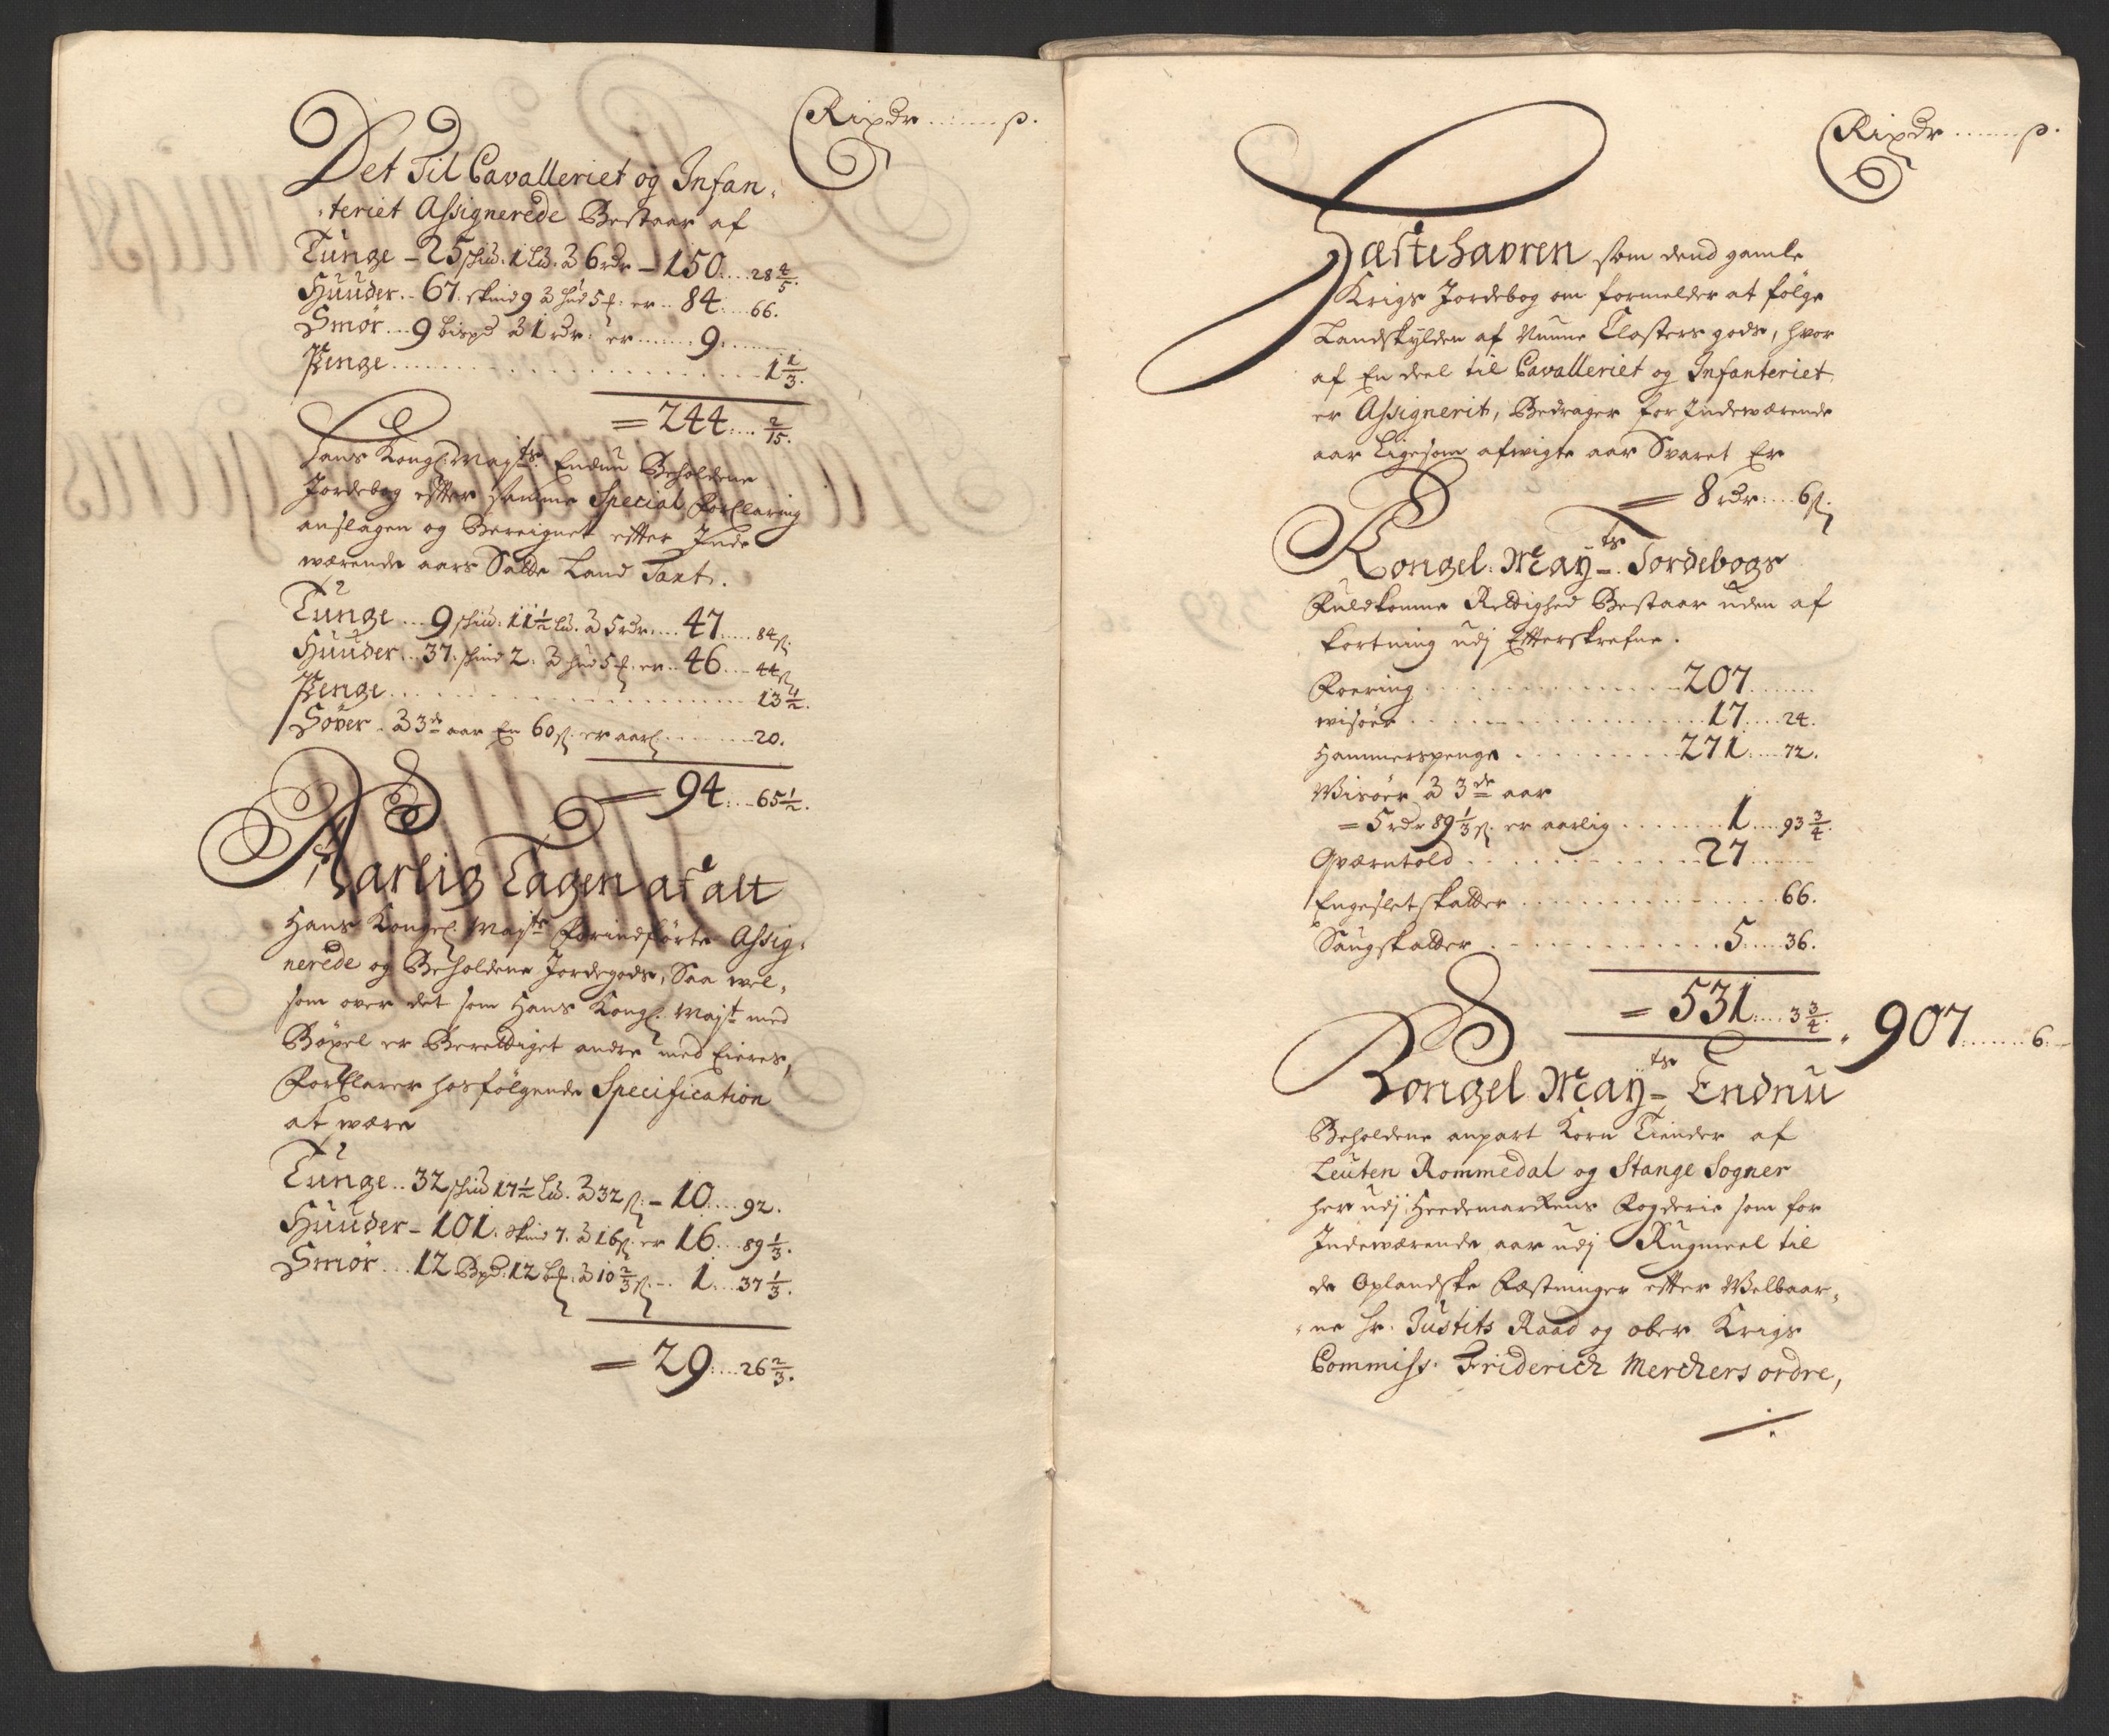 Rixdr ...... s.
Det Til Cavalleriet og Infan-
-teriet Assignerede Bestaar af
Tunge - 25 skid. 1 Ld. à 6 rdr - 150 .... 28 4/5.
Huuder .. 67. skind 9 à hud 5 f: er .. 84 .... 66.
Smør ... 9 bispd à 1 rdr: er ...... 9 ......
Penge ........................ 1 1/3.
= 244 .... 2/15.
Hans Kongl. Mayts. Endnu Beholdene
Jordebog efter samme Special Forklaring
anslagen og Bereignet efter Inde
wærende aars Satte Land Taxt.
Tunge ... 9 skid. 11 1/2 Ld. à 5 rdr .... 47 ..... 84 s.
Huuder .. 37. skind 2. à hud 5 f. er .. 46 .... 44 s
Penge ................... 13 1/2.
Søver . à 3de aar En 60 s. er aarl ........ 20.
= 94 .... 65 1/2.
Aarlig Tagen af alt
Hans Kongel Mayts Forindførte Assig-
nerede og Beholdene Jordegods, Saa wel,
som over det som Hans Kongl. Mayt med
Bøxel er Berettiget andre med Eieres,
Forklarer hosfølgende Specification
at være
Tunge .. 32 skid 17 1/2 Ld. à 32 s. - 10 .... 92.
Huuder - 101. skind 7. à 16 s. er 16 ... 89 1/3.
Smør ... 12 Bpd. 12 à 10 2/3 s ... 1 .... 37 1/3.
= 29 .... 26 2/3.
Rixdr ...... s.
Fæstehavren som dend gamle
Krigs Jordebog om formelder at følge
Landskylden af Nunne Closters gods, hvor
af En deel til Cavalleriet og Infanteriet
er Assignerit, Bedrager for Indeværende
aar Ligesom afvigte aar Svaret Er
= 8 rdr: .... 6 s.
Kongel: Mayts. Jordebogs
Fuldkomne Rettighed Bestaar uden af
kortning udj Efterskrefne.
Foering ............... 207 ......
wisøer ................ 17 .... 24.
Hammerspenge .......... 271 .... 72.
Wisøer à 3de aar
= 5 rdr 89 1/3 s. er aarlig ....... 1 .... 93 3/4.
Qværntold ............. 27 ......
Engesletskatter ............... 66.
Saugskatter ............ 5 .... 36.
= 531 .... 3 3/4. 907 ....... 6.
Kongel Mayts Endnu
Beholdene anpart Korn Tiender af
Leuten Rommedal og Stange Sogner
her udj Heedemarkens Fogderie som for
Indeværende aar udj Rugmeel til
de Oplandske Fæstninger efter Welbaar-
-ne Hr. Justits Raad og ober Krigs
Commiss. Friderich Merckers ordre,